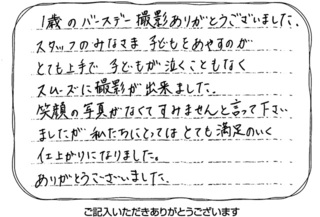 1歳のバースデー撮影ありがとうございました。
スタッフのみなさま 子どもをあやすのが
とても上手で 子どもが泣くこともなく
スムーズに撮影が出来ました。
笑顔の写真がなくてすみませんと言って下さい
ましたが 私たちにとっては とても満足のいく
仕上がりになりました。
ありがとうございました。
ご記入いただきありがとうございます